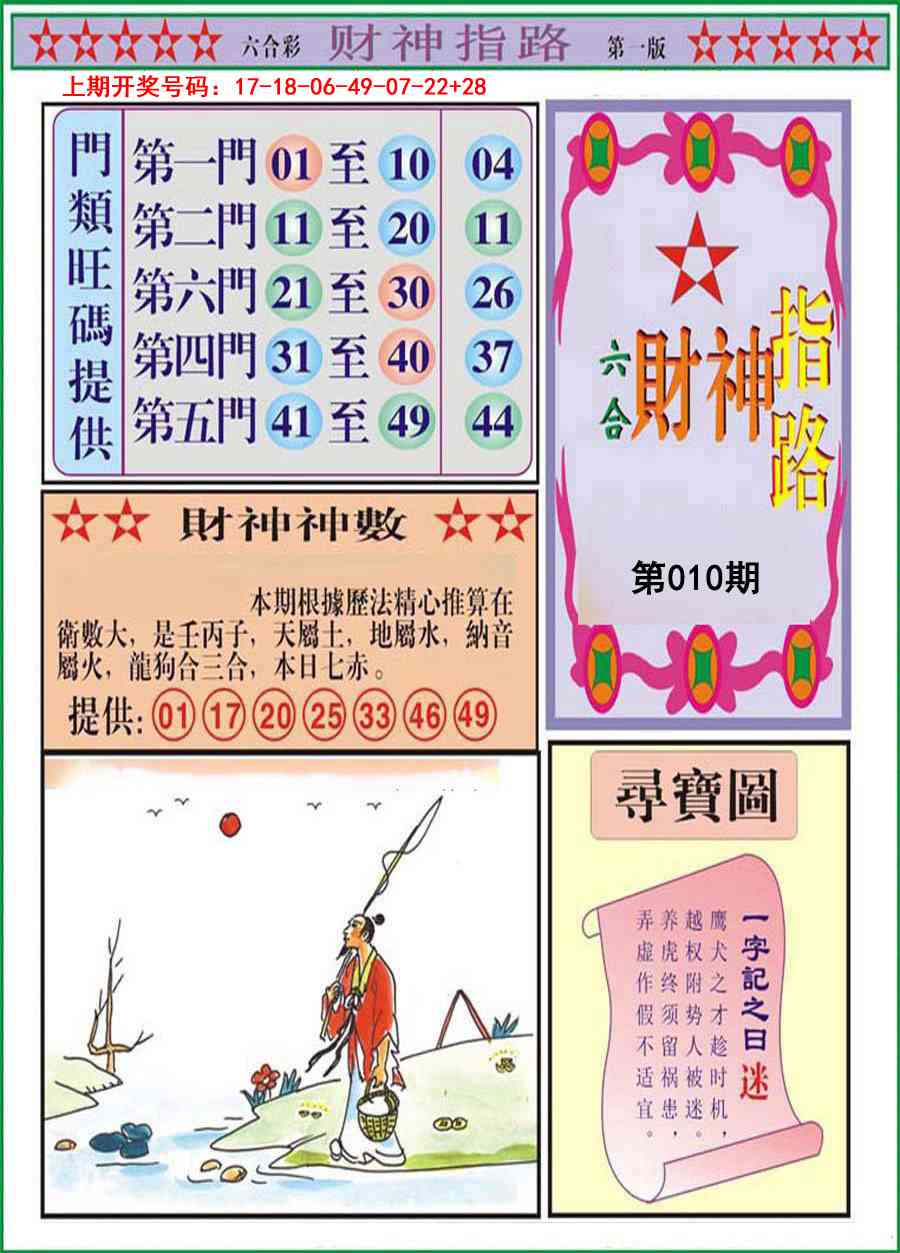 六合彩 财神指路 第一版
上期开奖号码：17-18-06-49-07-22+28
門類旺碼提供
第一門 01 至 10 04
第二門 11 至 20 11
第六門 21 至 30 26
第四門 31 至 40 37
第五門 41 至 49 44
六合
財神
指路
第010期
財神神數
本期根據歷法精心推算在
衛數大，是壬丙子，天屬土，地屬水，納音
屬火，龍狗合三合，本日七赤。
提供: 01 17 20 25 33 46 49
尋寶圖
一字記之曰迷
鹰犬之才趁时机，
越权附势人被迷。
养虎终须留祸患，
弄虚作假不适宜。